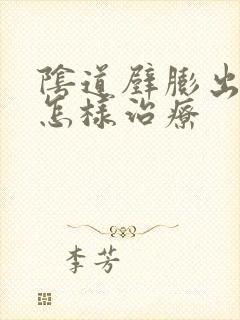 陰道壁膨出
怎樣治療
李芳